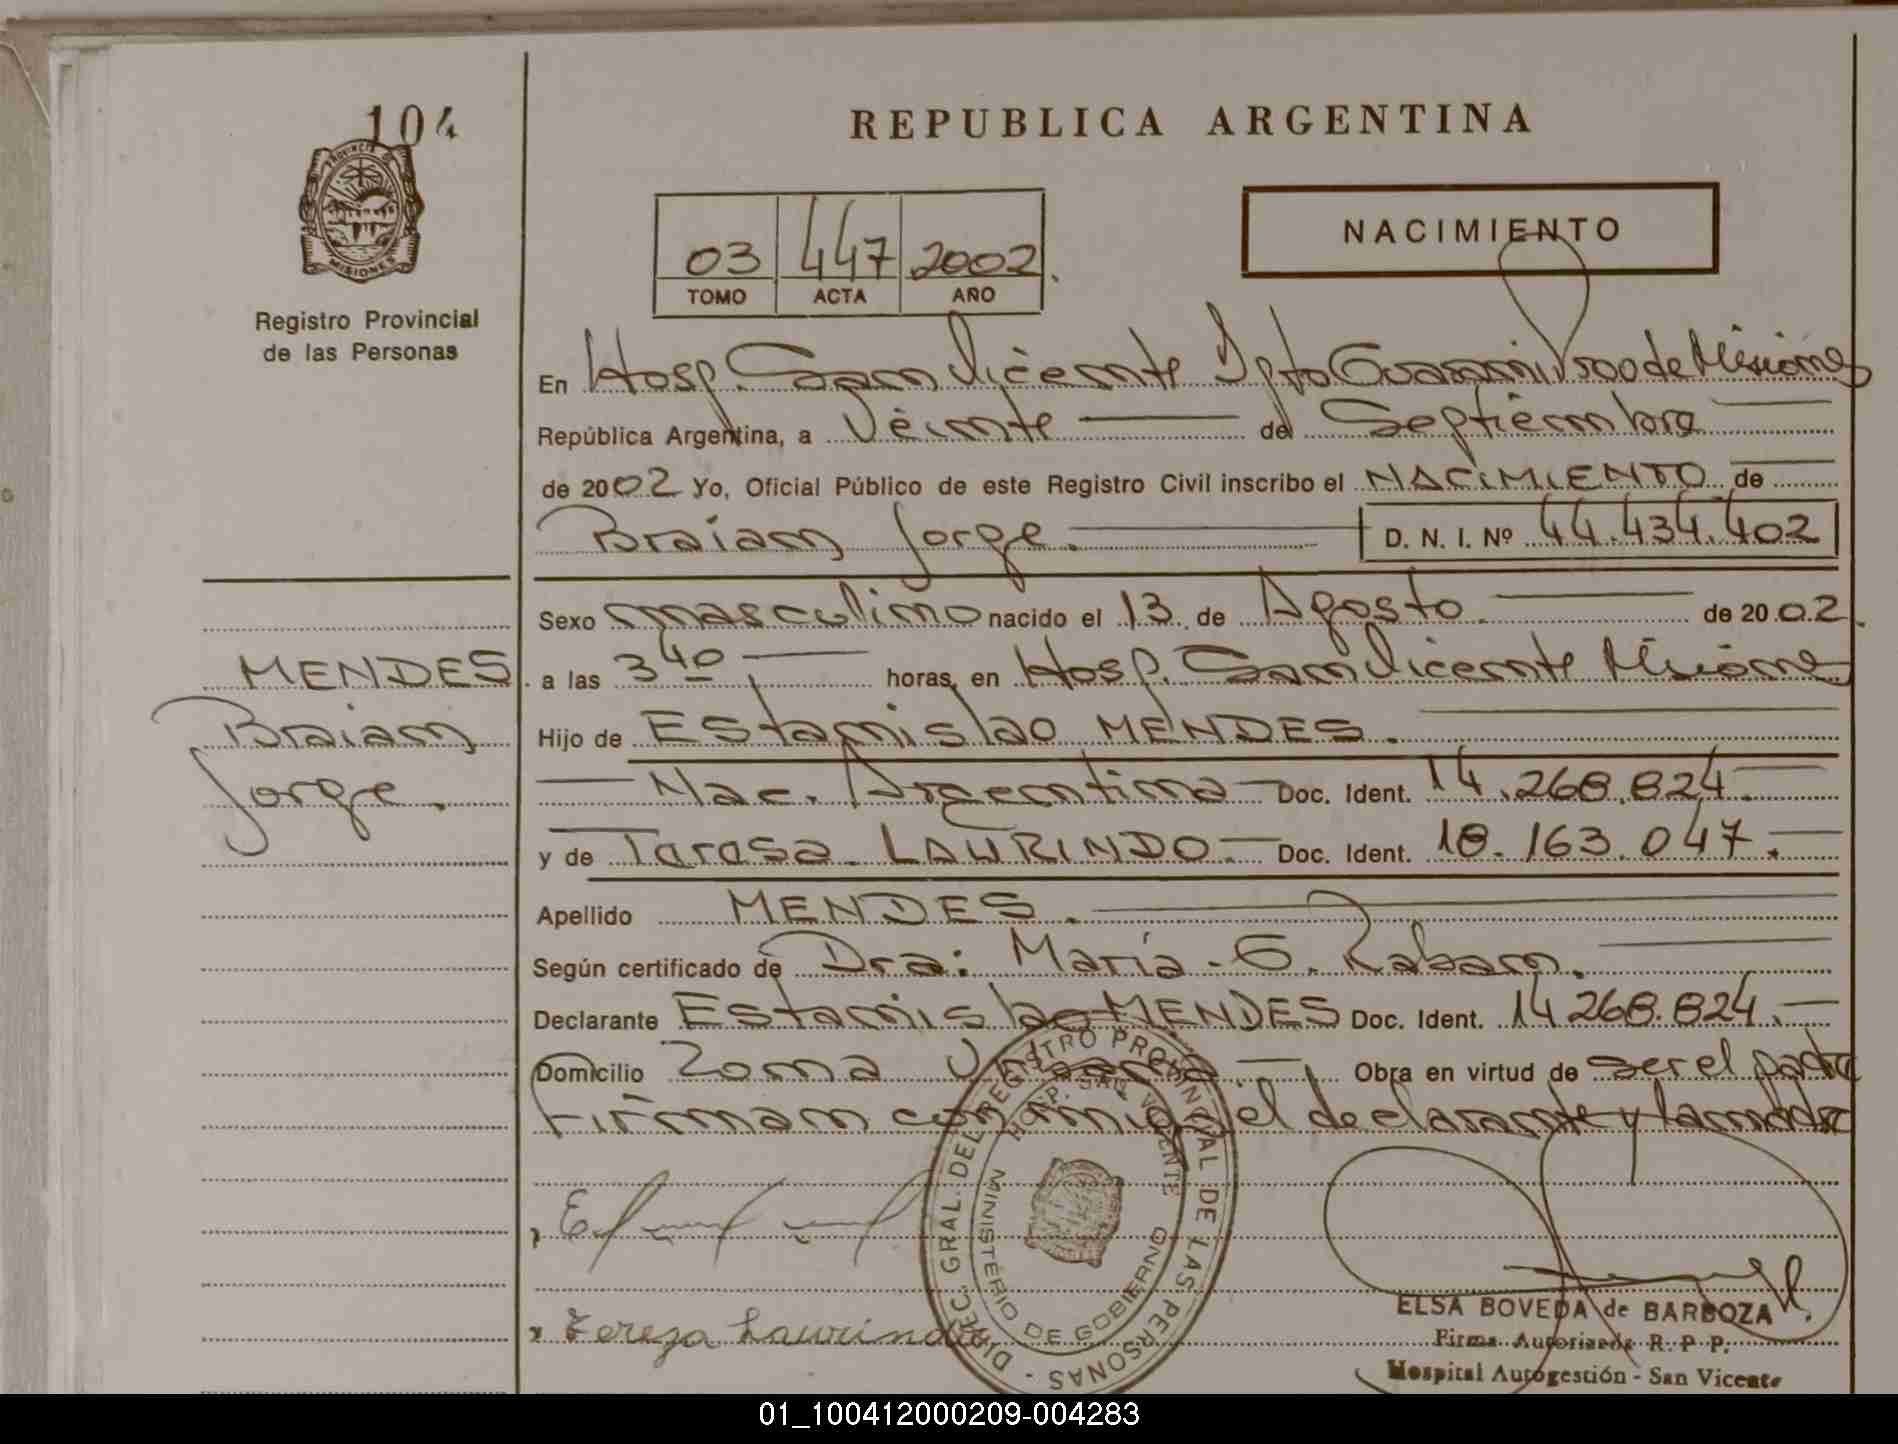 104
PROVINCIA DE
MISIONES
Registro Provincial
de las Personas
REPUBLICA ARGENTINA
03 447 2002.
TOMO ACTA AÑO
NACIMIENTO
En Hosp. San Vicente Dpto Guarani Prov de Misiones
República Argentina, a Veinte de Septiembre
de 2002 Yo, Oficial Público de este Registro Civil inscribo el NACIMIENTO de
Braian Jorge. D. N. I. Nº 44.434.402
Sexo masculino nacido el 13 de Agosto de 2002.
MENDES
Braian
Jorge.
a las 3 40 horas, en Hosp. San Vicente Misiones
Hijo de Estanislao MENDES.
Nac. Argentina Doc. Ident. 14.268.824.
y de Taresa LAURINDO. Doc. Ident. 18.163.047.
Apellido MENDES.
Según certificado de Dra: María - G. Raban.
Declarante Estanislao MENDES Doc. Ident. 14 268.824.
Domicilio Zona Urbana. Obra en virtud de ser el padre
Firman conmigo el declarante y la madre
DIREC. GRAL. DEL REGISTRO PROVINCIAL DE LAS PERSONAS -
HOSP. SAN VICENTE
MINISTERIO DE GOBIERNO
Tereza Laurindo
ELSA BOVEDA de BARBOZA
Firma Autorizada R. P. P.
Hospital Autogestión - San Vicente
01_100412000209-004283